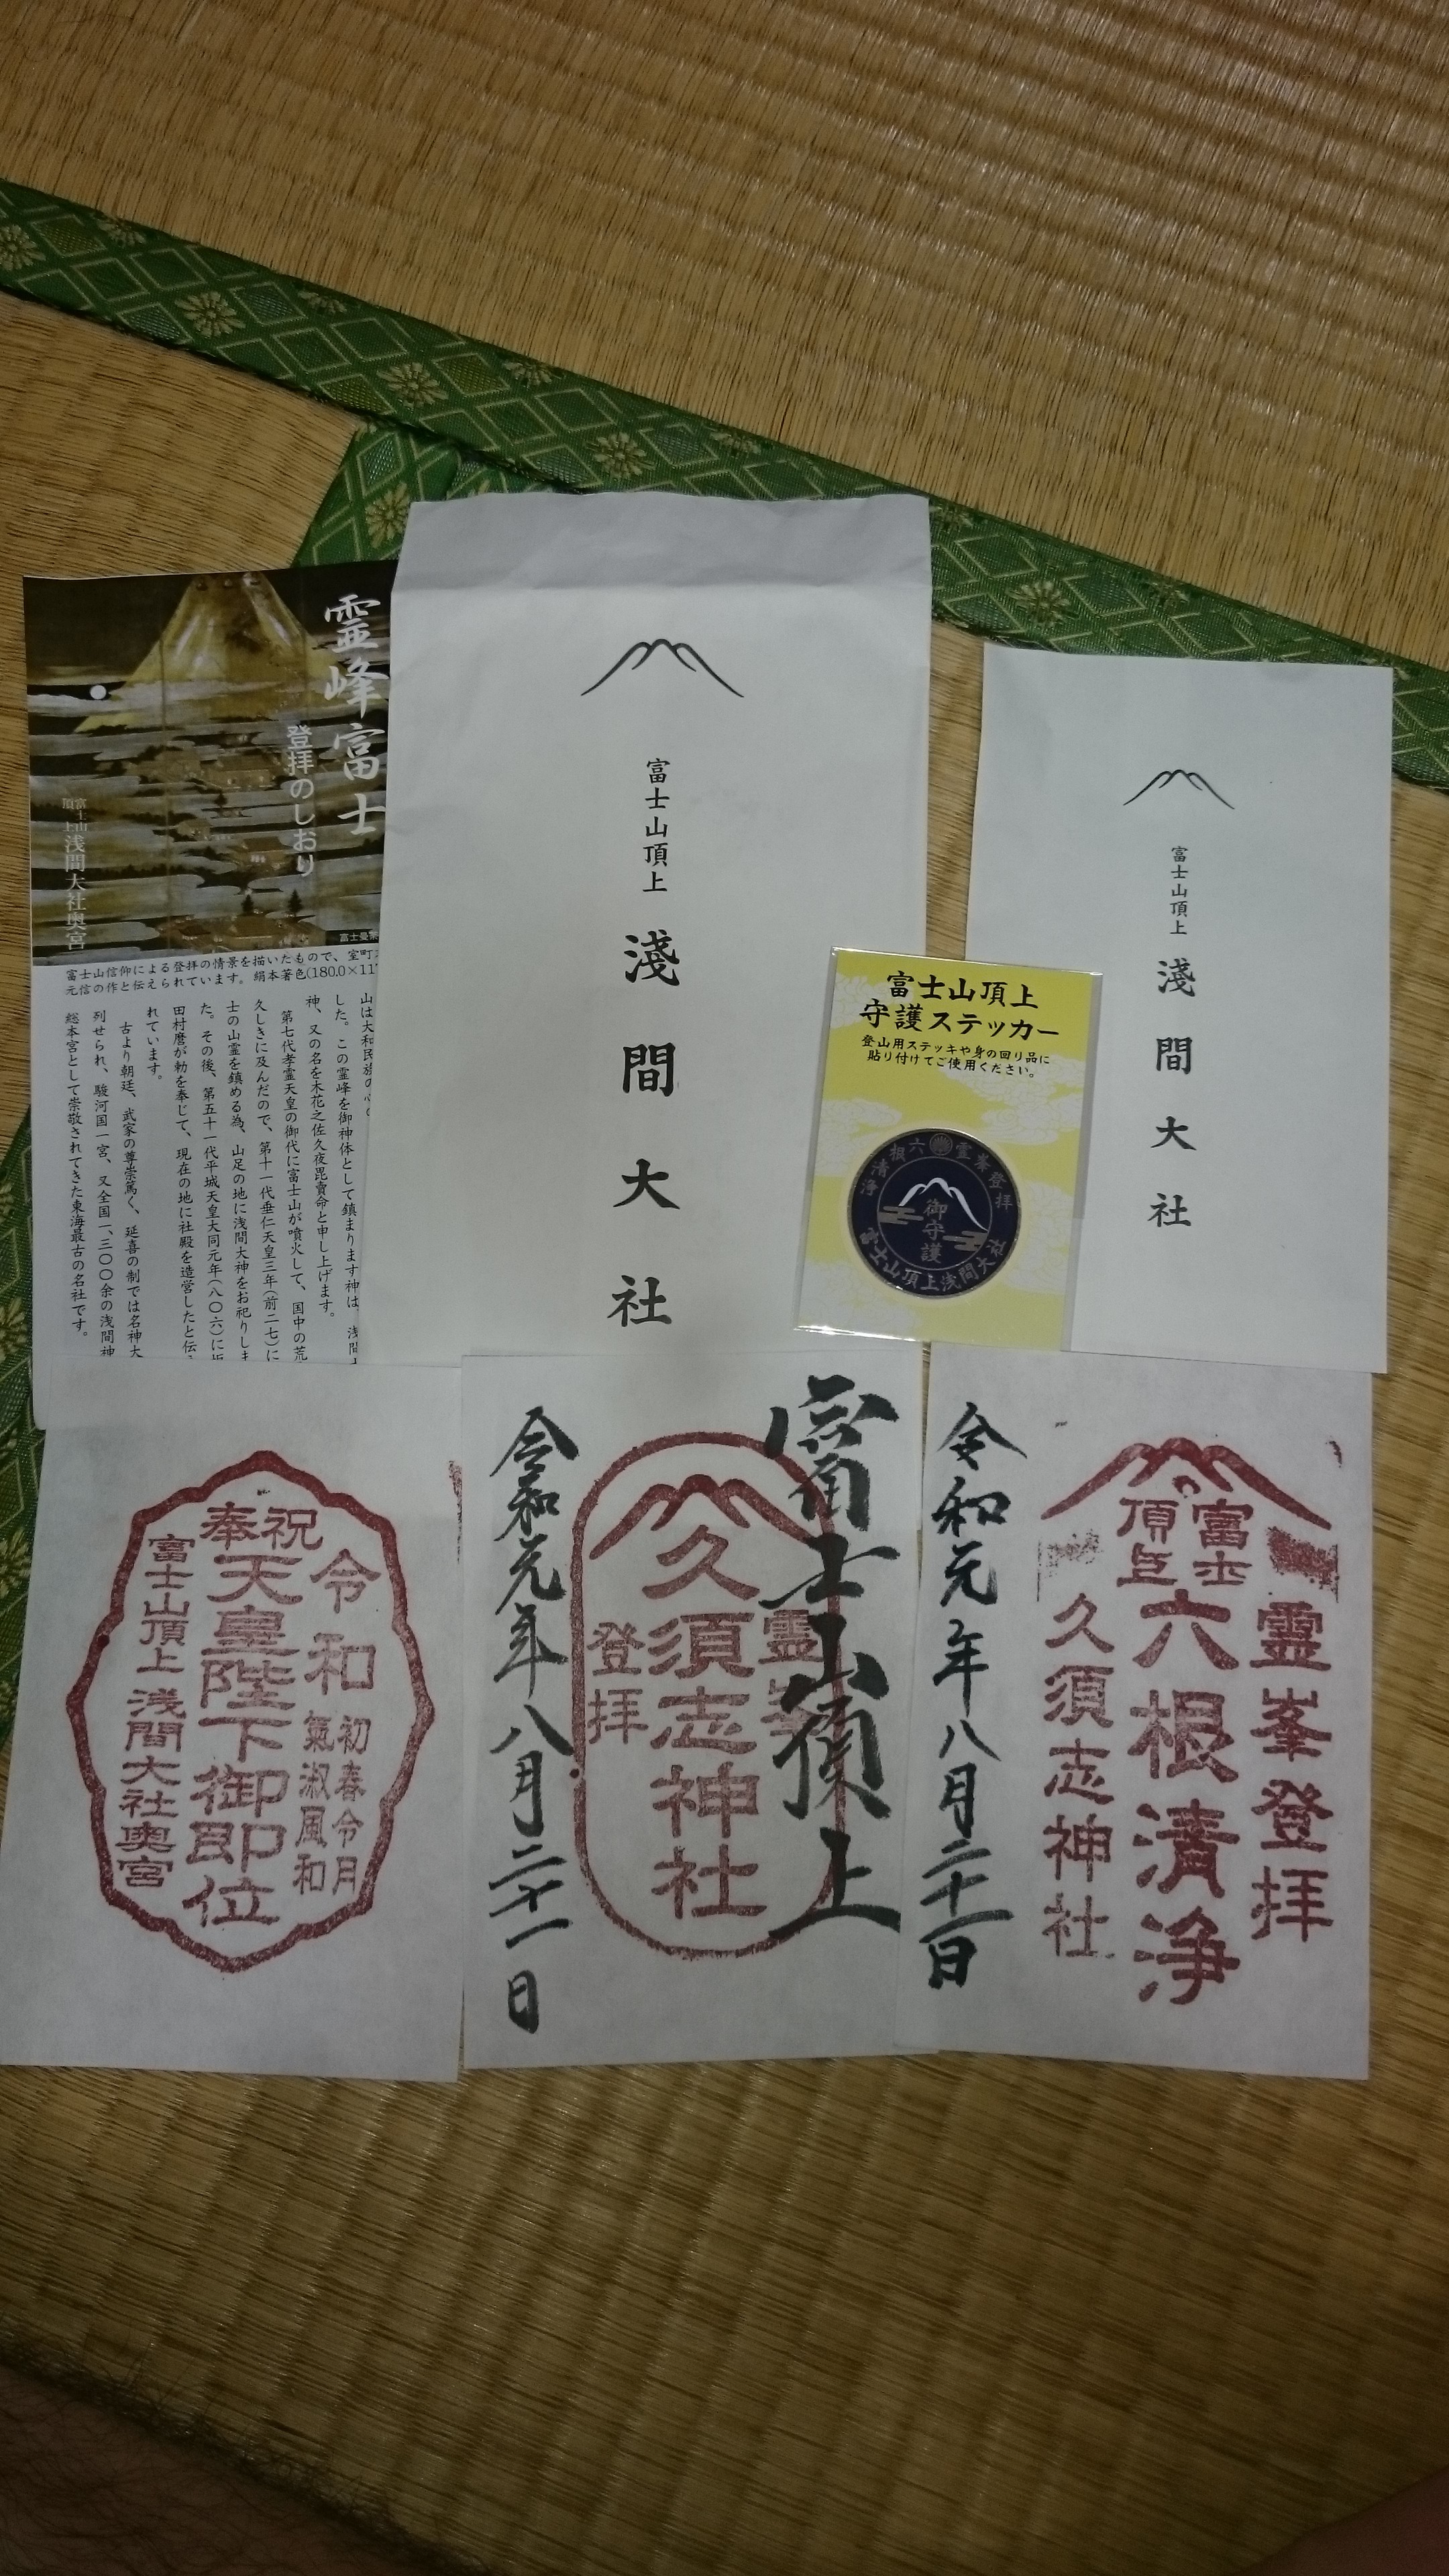 霊峰富士
登拝のしおり
富士山
頂上
浅間大社奥宮
富士山信仰による登拝の情景を描いたもので、室町
元信の作と伝えられています。絹本著色(180.0×11
山は大和民族の心の
した。この霊峰を御神体として鎮まります神は、浅間
神、又の名を木花之佐久夜毘賣命と申し上げます。
第七代孝霊天皇の御代に富士山が噴火して、国中の荒
久しきに及んだので、第十一代垂仁天皇三年(前二七)に
士の山霊を鎮める為、山足の地に浅間大神をお祀りしま
た。その後、第五十一代平城天皇大同元年(八〇六)に坂
田村麿が勅を奉じて、現在の地に社殿を造営したと伝
れています。
古より朝廷、武家の尊崇篤く、延喜の制では名神大
列せられ、駿河国一宮、又全国一、三〇〇余の浅間神
総本宮として崇敬されてきた東海最古の名社です。
富士山頂上
淺間大社
富士山頂上
淺間大社
富士山頂上
守護ステッカー
登山用ステッキや身の回り品に
貼り付けてご使用ください。
霊峯登拝
六根清浄
御守護
富士山頂上浅間大社
奉祝
令和
初春令月
氣淑風和
天皇陛下御即位
富士山頂上浅間大社奥宮
富士山頂上
霊峯
久須志神社
登拝
令和元年八月二十一日
霊峯登拝
富士
頂上
六根清浄
久須志神社
令和元年八月二十一日